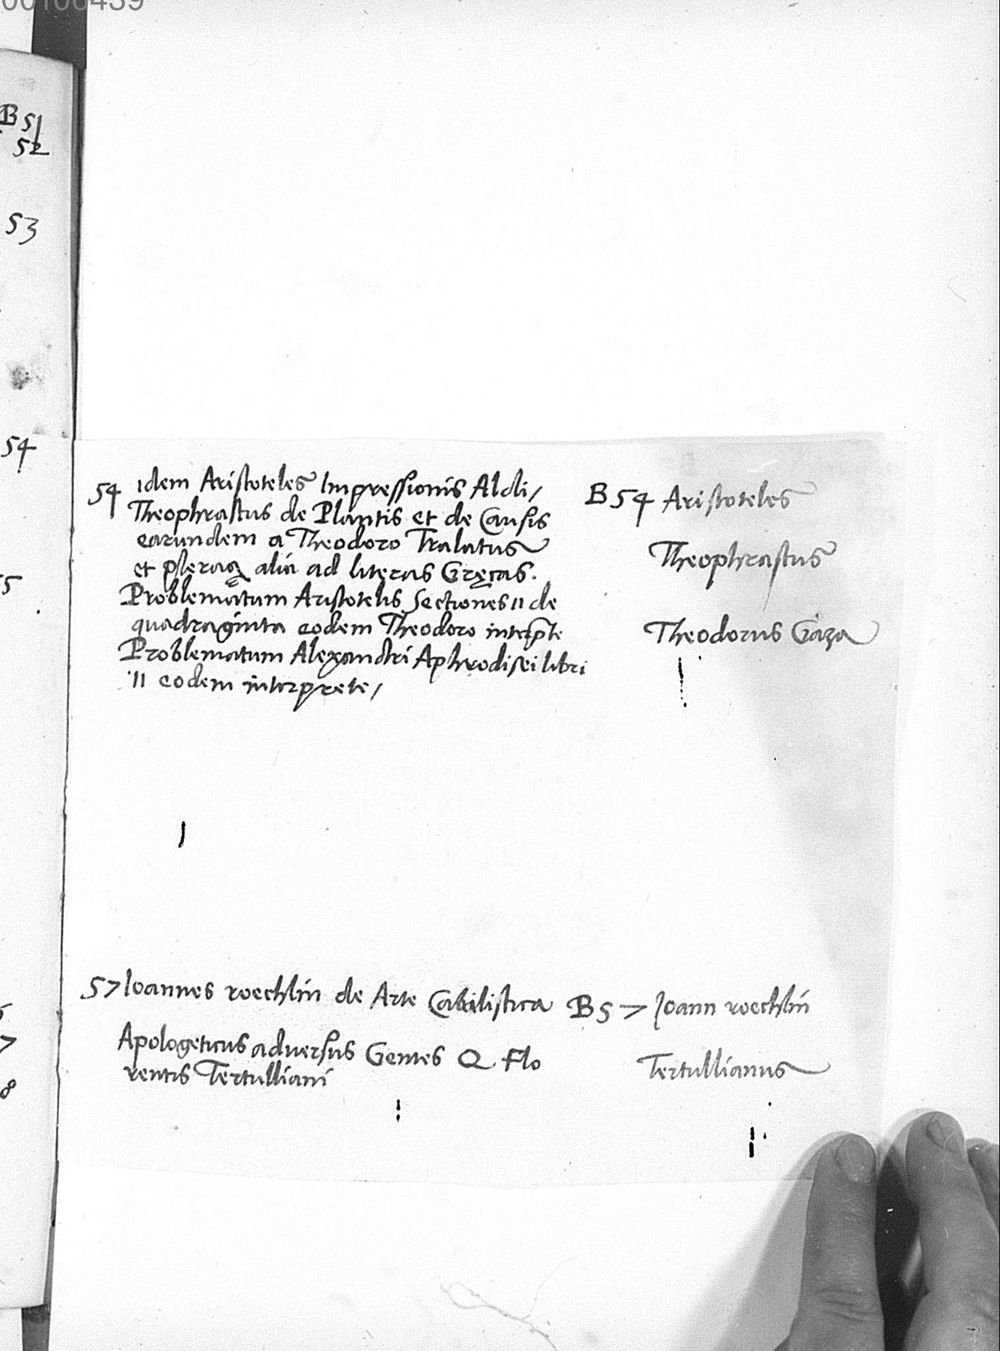 00106439
B 51
52
53
54
5
7
8
54 idem Aristoteles Impressionis Aldi/
Theophrastus de Plantis et de Causis
earundem a Theodoro Tralatus
et pleraq alia ad literas Gręcas.
Problematum Aristotelis Sectiones 11 de
quadraginta eodem Theodoro interpte
Problematum Alexandri Aphrodisei libri
11 eodem interprete/
B 54 Aristoteles
Theophrastus
Theodorus Gaza
57 Ioannes roechlin de Arte Cabilistica
Apologeticus adversus Gentes Q. Flo
rentis Tertulliani
B 57 Joann roechlin
Tertullianus